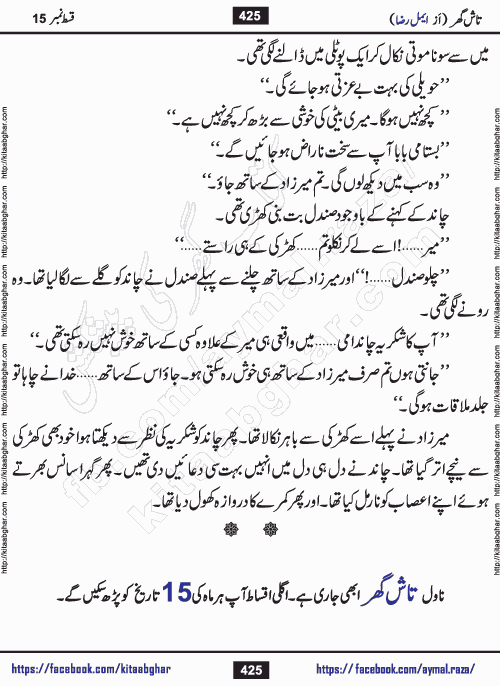 تاش گھر (از ایمل رضا) 425 قسط نمبر 15
میں سے سونا موتی نکال کر ایک پوٹلی میں ڈالنے لگی تھی۔
’’حویلی کی بہت بے عزتی ہو جائے گی۔‘‘
’’کچھ نہیں ہوگا۔ میری بیٹی کی خوشی سے بڑھ کر کچھ نہیں ہے۔‘‘
’’بستامی بابا آپ سے سخت ناراض ہو جائیں گے۔‘‘
’’وہ سب میں دیکھ لوں گی۔ تم میرزاد کے ساتھ جاؤ۔‘‘
چاند کے کہنے کے باوجود صندل بت بنی کھڑی تھی۔
’’میر......! اسے لے کر نکلو تم...... کھڑکی کے ہی راستے......‘‘
’’چلو صندل......!‘‘ اور میرزاد کے ساتھ چلنے سے پہلے صندل نے چاند کو گلے سے لگا لیا تھا۔ وہ
رونے لگی تھی۔
’’آپ کا شکریہ چاندامی...... میں واقعی ہی میر کے علاوہ کسی کے ساتھ خوش نہیں رہ سکتی تھی۔‘‘
’’جانتی ہوں تم صرف میرزاد کے ساتھ ہی خوش رہ سکتی ہو۔ جاؤ اس کے ساتھ...... خدا نے چاہا تو
جلد ملاقات ہوگی۔‘‘
میرزاد نے پہلے اسے کھڑکی سے باہر نکالا تھا۔ پھر چاند کو شکریہ کی نظر سے دیکھتا ہوا خود بھی کھڑکی
سے نیچے اتر گیا تھا۔ چاند نے دل ہی دل میں انہیں بہت سی دعائیں دی تھیں۔ پھر گہرا سانس بھرتے
ہوئے اپنے اعصاب کو نارمل کیا تھا۔ اور پھر کمرے کا دروازہ کھول دیا تھا۔
ناول تاش گھر ابھی جاری ہے۔ اگلی اقساط آپ ہر ماہ کی 15 تاریخ کو پڑھ سکیں گے۔
https://facebook.com/kitaabghar 425 https://facebook.com/aymal.raza/
http://kitaabghar.com http://kitaabghar.com http://kitaabghar.com http://kitaabghar.com http://kitaabghar.com http://kitaabghar.com
http://kitaabghar.com http://kitaabghar.com http://kitaabghar.com http://kitaabghar.com http://kitaabghar.com http://kitaabghar.com
kitaabghar.com